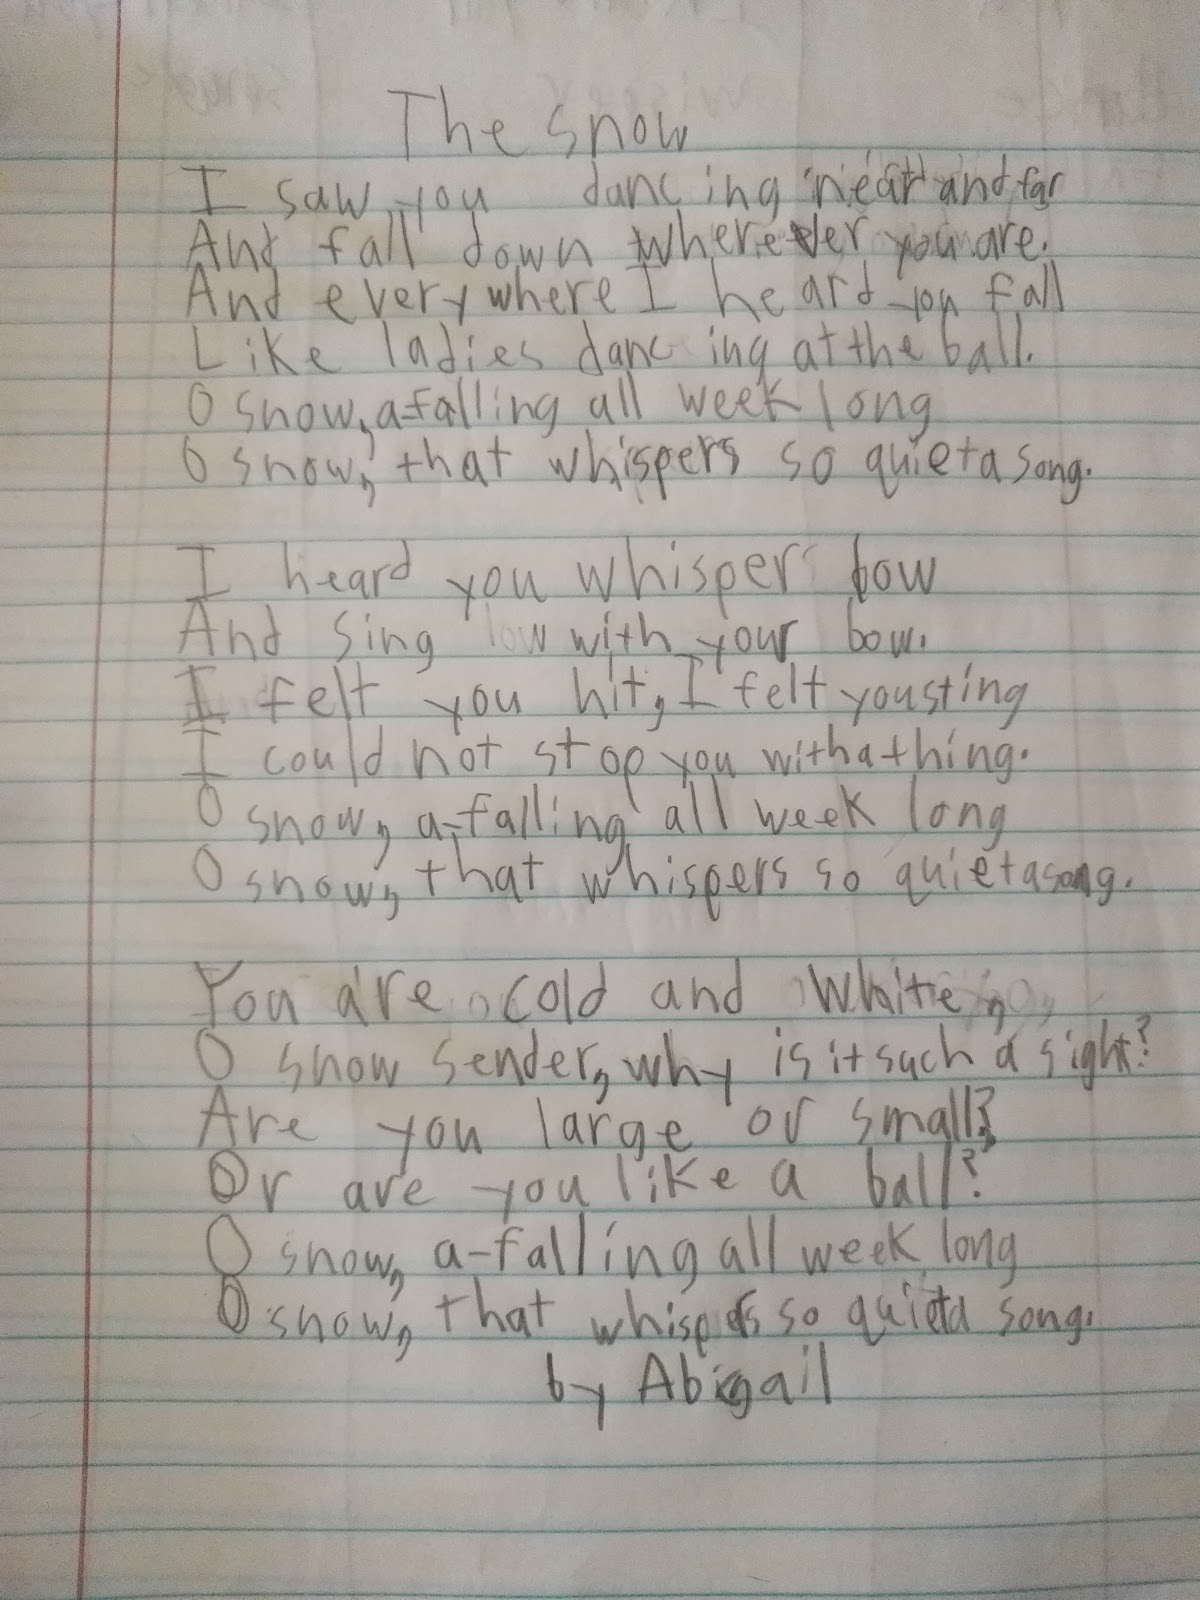 The snow
I saw you dancing near and far
And fall down wherever you are.
And everywhere I heard you fall
Like ladies dancing at the ball.
O snow, a-falling all week long
O snow, that whispers so quiet a song.
I heard you whisper
And sing low with your bow.
I felt you hit, I felt you sting
I could not stop you with a thing.
O snow, a-falling all week long
O snow, that whispers so quiet a song.
You are cold and white,
O snow sender, why is it such a sight?
Are you large or small?
Or are you like a ball?
O snow, a-falling all week long
O snow, that whispers so quiet a song.
by Abigail